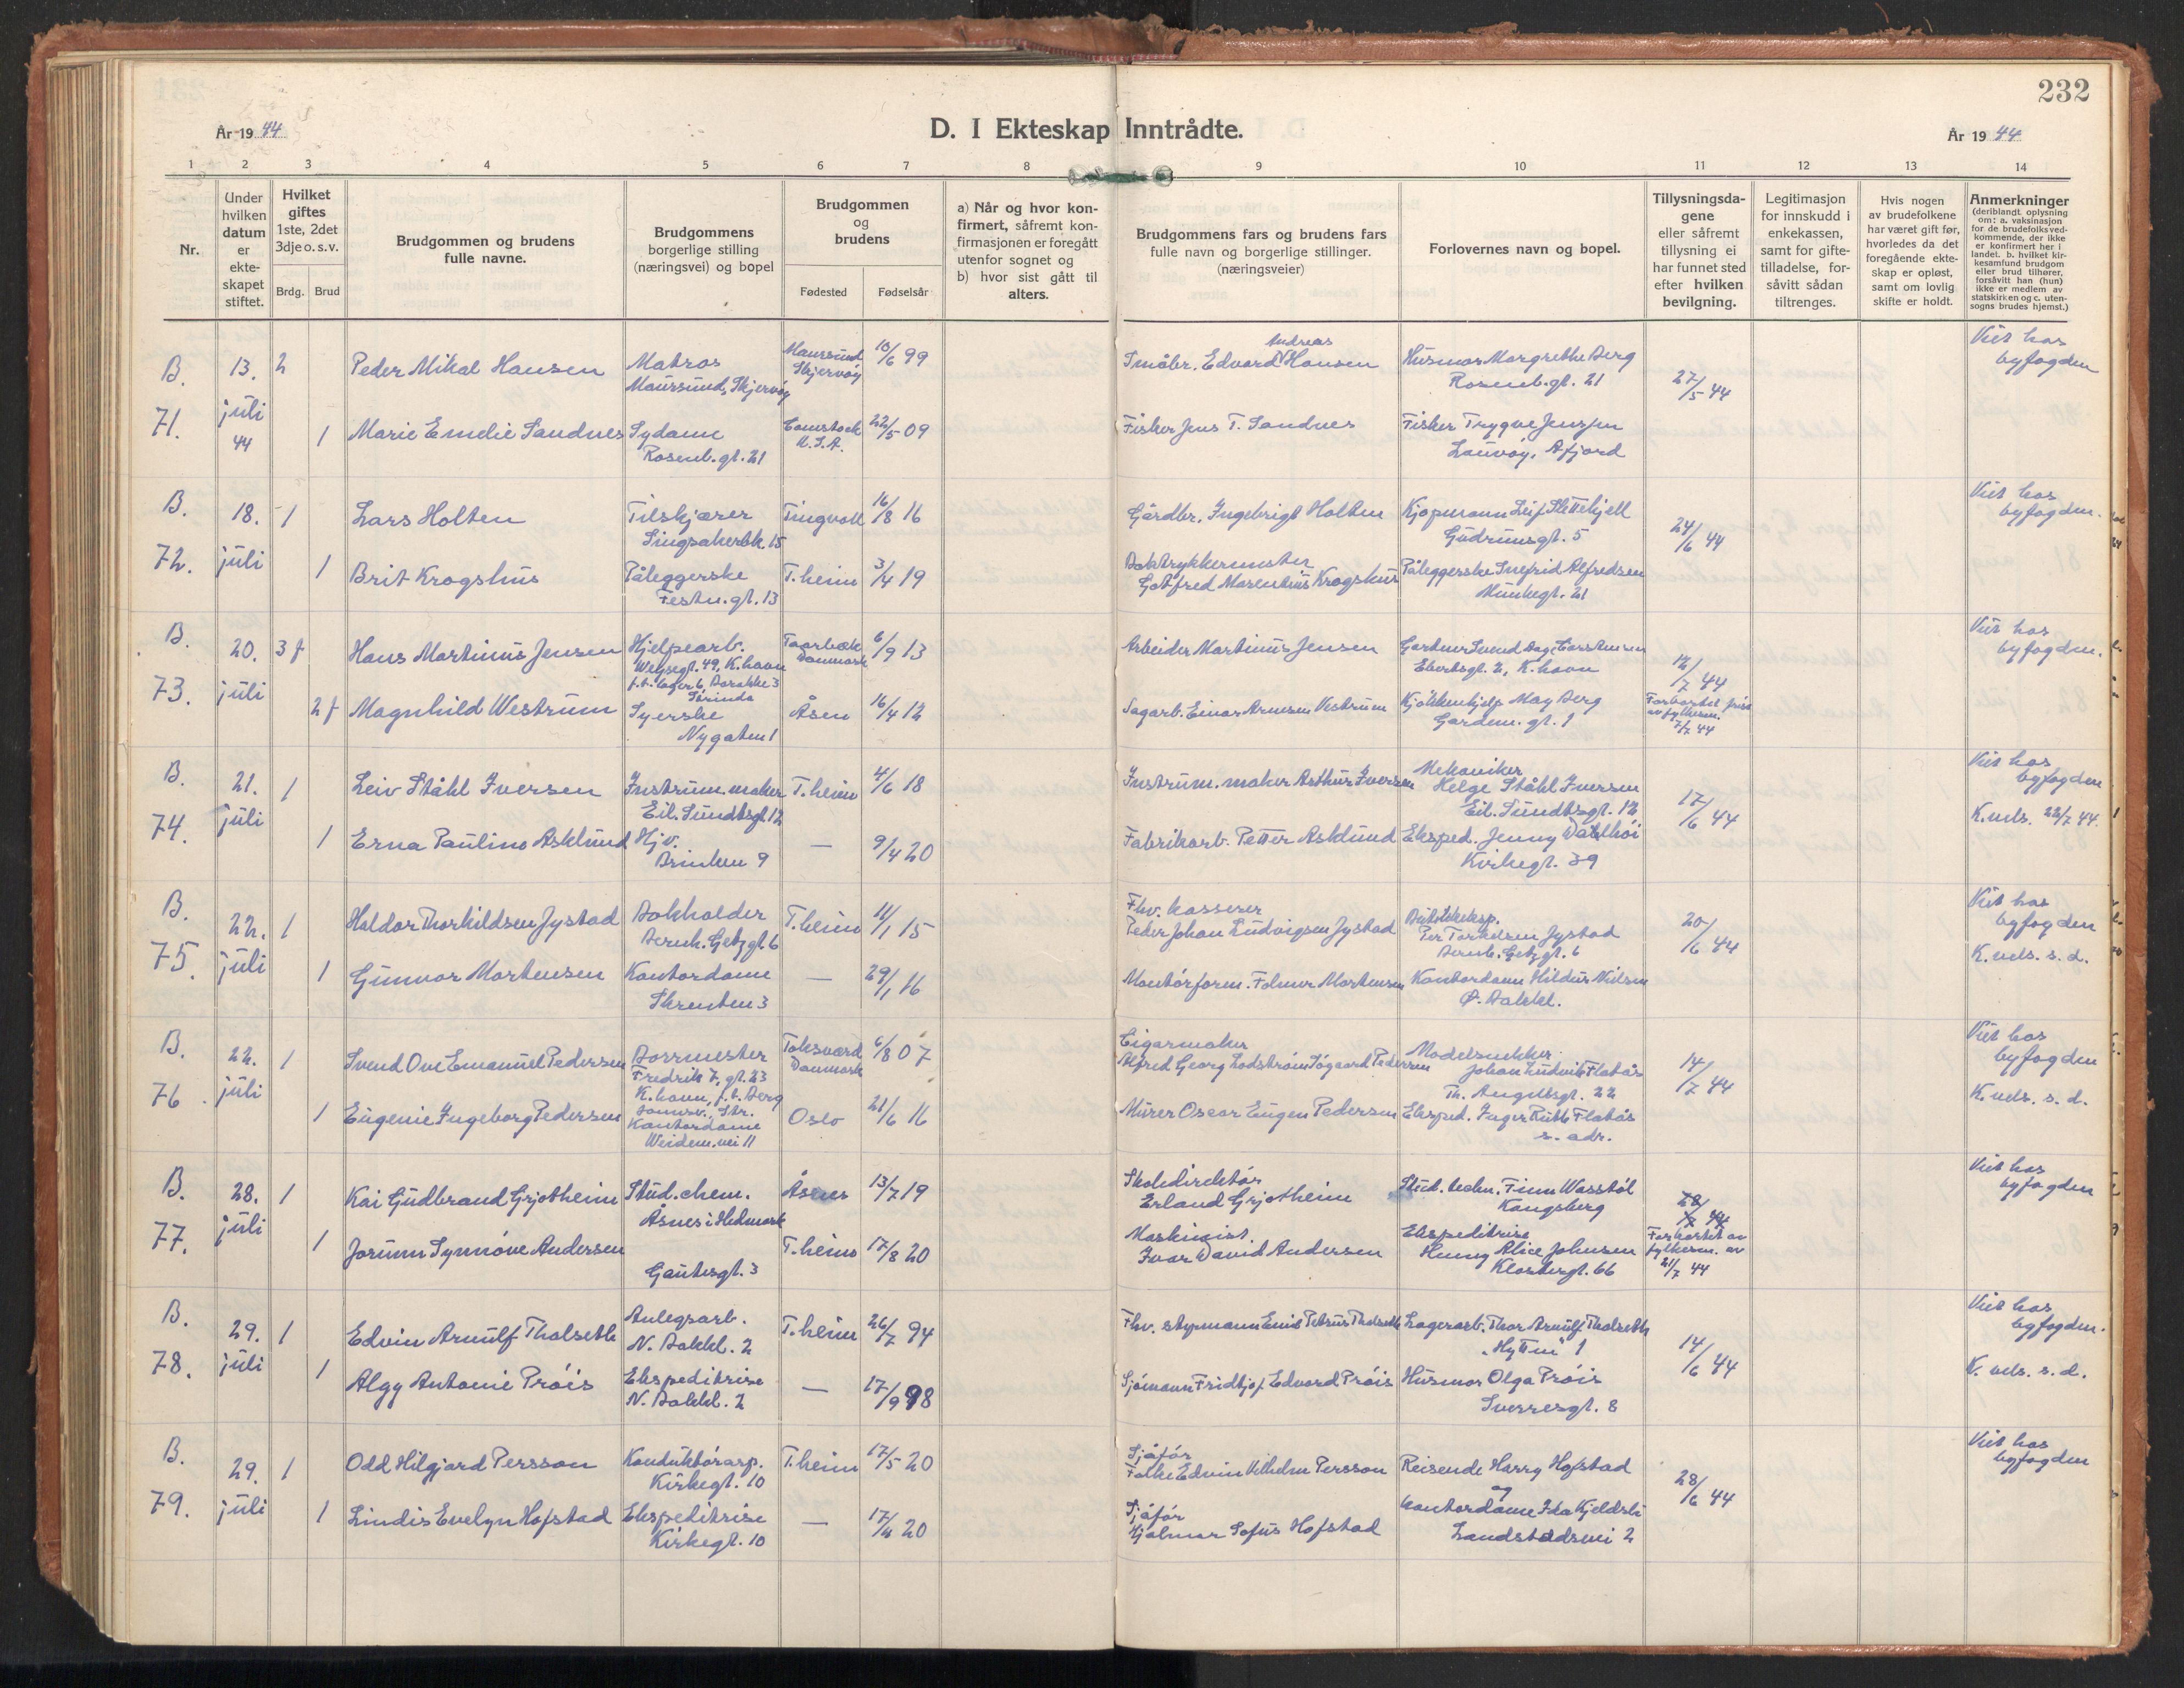 232
År 19 44
D. I Ekteskap Inntrådte.
År 19 44
1 2 3 4 5 6 7 8 9 10 11 12 13 14
Nr.
Under hvilken datum er ekte-skapet stiftet.
Hvilket giftes 1ste, 2det 3dje o. s. v.
Brdg. Brud
Brudgommen og brudens fulle navne.
Brudgommens borgerlige stilling (næringsvei) og bopel
Brudgommen og brudens
Fødested Fødselsår
a) Når og hvor kon-firmert, såfremt kon-firmasjonen er foregått utenfor sognet og
b) hvor sist gått til alters.
Brudgommens fars og brudens fars fulle navn og borgerlige stillinger. (næringsveier)
Forlovernes navn og bopel.
Tillysningsda-gene eller såfremt tillysning ei har funnet sted efter hvilken bevilgning.
Legitimasjon for innskudd i enkekassen, samt for gifte-tilladelse, for-såvitt sådan tiltrenges.
Hvis nogen av brudefolkene har været gift før, hvorledes da det foregående ekte-skap er opløst, samt om lovlig skifte er holdt.
Anmerkninger (deriblandt oplysning om: a. vaksinasjon for de brudefolksved-kommende, der ikke er konfirmert her i landet. b. hvilket kir-kesamfund brudgom eller brud tilhører, forsåvitt han (hun) ikke er medlem av statskirken og c. uten-sogns brudes hjemst.)
B. 71. 13. juli 44
2 Peder Mikal Hansen Matros Maursund, Skjervøy
Maursund Skjervøy 10/6 99
Småbr. Edvard Andreas Hansen
Husmor Margrethe Berg Rosenb.gt. 21
27/5 44
Viet hos byfogden
1 Marie Emelie Sandnes Sydame Rosenb.gt. 21
Comstock U.S.A. 22/5 09
Fisker Jens T. Sandnes
Fisker Trygve Jenssen Lauvøy, Afjord
B. 72. 18. juli
1 Lars Holten Tilskjærer Singsakerbk. 15
Tingvoll 16/8 16
Gårdbr. Ingebrigt Holten
Kjøpmann Leif Slettebjell Gudrunsgt. 5
24/6 44
Viet hos byfogden.
1 Brit Krogshus Påleggerske Festn.gt. 13
T.heim 3/4 19
Boktrykkermester Gotfred Marentius Krogshus
Påleggerske Snefrid Alfredsen Munkegt. 21
B. 73. 20. juli
3 f Hans Martinus Jensen Hjelpearb. Welsegt. 49, K.havn f.t. Lager 6 Barakke 3 Strinda
Taarbæk Danmark 6/9 13
Arbeider Martinus Jensen
Gartner Svend Aage Carstensen Ebertsgt. 2, K.havn
12/7 44
Forkortet frist av fylkesm. 7/7 44
Viet hos byfogden.
2 f Magnhild Westrum Syerske Nygaten 1
Åsen 16/4 12
Sagarb. Einar Arnesen Vestrum
Kjøkkenhjelp May Berg Gardem. gt. 1
B. 74. 21. juli
1 Leiv Ståhl Iversen Instrum.maker Eil. Sundtsgt. 12
T.heim 4/6 18
Instrum.maker Arthur Iversen
Mekaniker Helge Ståhl Iversen Eil. Sundtsgt. 12
17/6 44
Viet hos byfogden
K.vels. 22/7 44.
1 Erna Pauline Asklund Hjv. Brinken 9
— 9/4 20
Fabrikarb. Petter Asklund
Eksped. Jenny Dahlhøi Kirkegt. 39
B. 75. 22. juli
1 Haldor Thorkildsen Jystad Bokholder Bernh. Getzgt. 6
T.heim 11/1 15
Fhv. kasserer Peder Johan Ludvigsen Jystad
Per Torkelsen Jystad Bernh. Getzgt. 6
20/6 44
Viet hos byfogden
K.vels. s.d.
1 Gunvor Mortensen Kontordame Skrenten 3
— 29/1 16
Montørform. Folmer Mortensen
Kontordame Hildur Nilsen Ø. Bakkl.
B. 76. 22. juli
1 Svend Ove Emanuel Pedersen Bormester Fredrik 7. gt. 23 K.havn, f.t. Berg Str.
Toksværd Danmark 6/8 07
Cigarmaker Alfred Georg Lodstrøm Søgaard Pedersen
Modelsnekker Johan Ludvik Flatås Th. Angellsgt. 22
14/7 44
Viet hos byfogden
K.vels. s.d.
1 Eugenie Ingeborg Pedersen Kontordame Weidem.vei 11
Oslo 21/6 16
Murer Oscar Eugen Pedersen
Eksped. Inger Ruth Flatås s. adr.
B. 77. 28. juli
1 Kai Gudbrand Grjotheim Stud.chem. Åsnes i Hedmark
Åsnes 13/7 19
Skoledirektør Erland Grjotheim
Stud. techn. Finn Wasstøl Kongsberg
28/7 44
Forkortet av fylkesm. av 21/7 44
Viet hos byfogden
1 Jorunn Synnøve Andersen Gautesgt. 3
T.heim 17/8 20
Maskinist. Ivar David Andersen
Ekspeditrise Henny Alice Johnsen Klostergt. 66
B. 78. 29. juli
1 Edvin Arnulf Thalseth Anlegsarb. N. Bakkl. 2
T.heim 26/7 94
Fhv. styrmann Emil Petrus Thalseth
Lagerarb. Thor Arnulf Thalseth "Hytten" 1
14/6 44
Viet hos byfogden.
K. vels. s.d.
1 Algy Antonie Prøis Ekspeditrise N. Bakkl. 2
— 17/9 98
Sjømann Fridtjof Edvard Prøis
Husmor Olga Prøis Sverresgt. 8
B. 79. 29. juli
1 Odd Hilgjard Persson Konduktørasp. Kirkegt. 10
T.heim 17/5 20
Sjåfør Folke Edvin Vilhelm Persson
Reisende Harry Hofstad og
28/6 44
Viet hos byfogden
1 Lindis Evelyn Hofstad Ekspeditrise Kirkegt. 10
— 17/4 20
Sjåfør Hjalmar Sofus Hofstad
Kontordame Ida Kjeldsli Landstadsvei 2